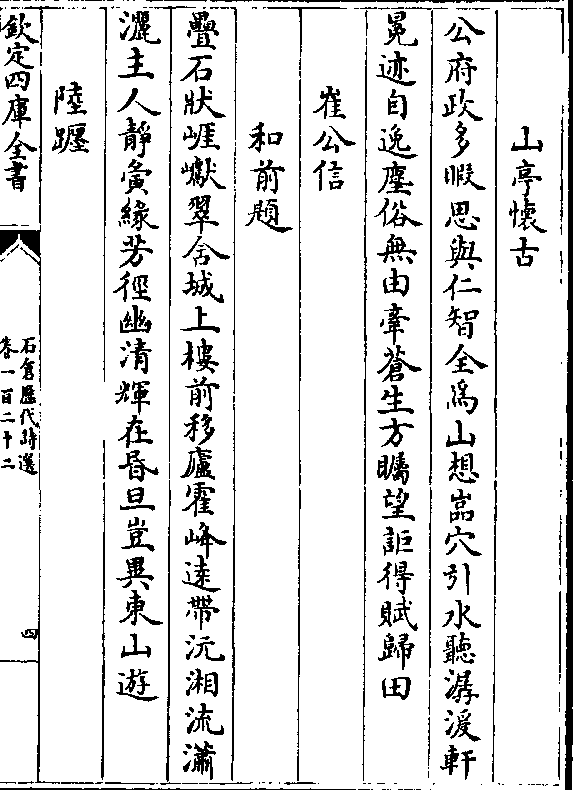 山亭懷古
公府政多暇思與仁智全為山想嵓穴引水聽潺湲軒
冕迹自逸塵俗無由牽蒼生方矚望詎得賦歸田
崔公信
和前題
疊石狀崕巘翠含城上樓前移廬霍峰遠帶沅湘流瀟
灑主人靜夤緣芳徑幽清輝在昏旦豈異東山遊
陸𤩽
欽定四庫全書
石倉歷代詩選
卷一百二十二
四